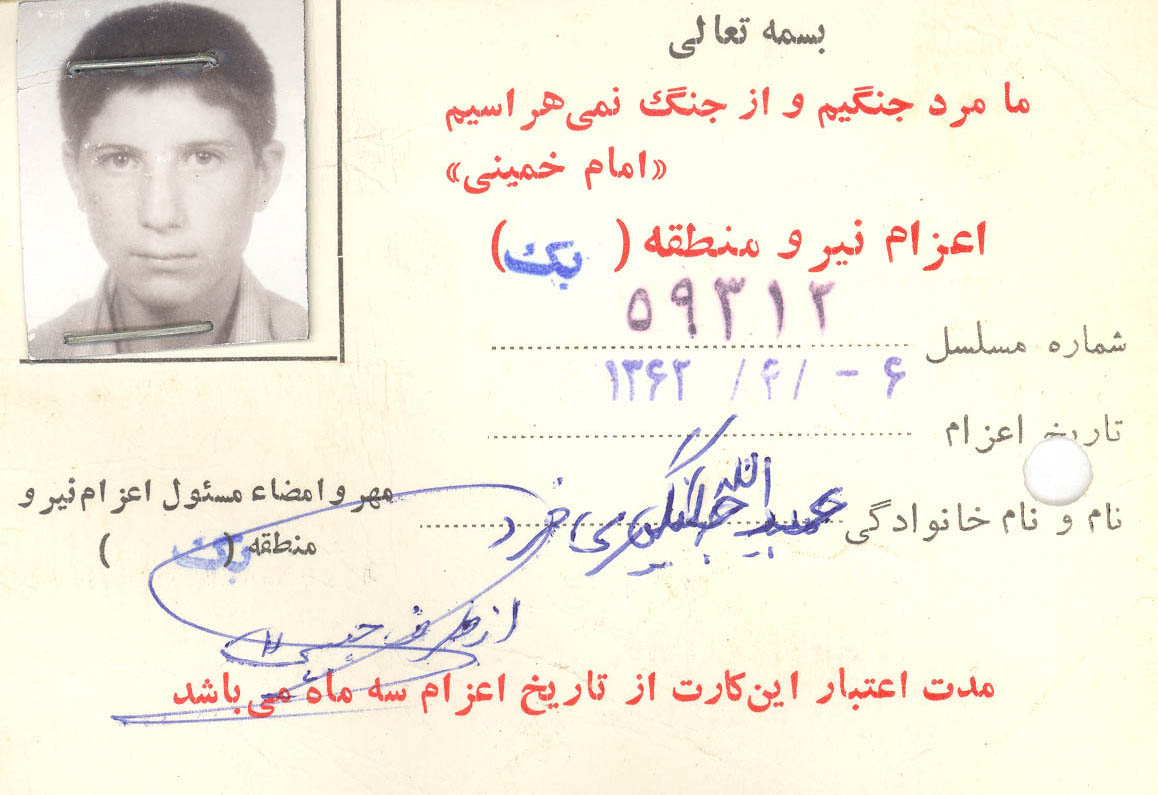 بسمه تعالی
ما مرد جنگیم و از جنگ نمی‌هراسیم
«امام خمینی»
اعزام نیرو منطقه ( یک )
۵۹۳۱۲
شماره مسلسل
۶ - /۴/ ۱۳۶۲
تاریخ اعزام
نام و نام خانوادگی عبدالله جهانگیری فرد
مهر و امضاء مسئول اعزام نیرو
منطقه ( یک )
از طرف
مدت اعتبار این کارت از تاریخ اعزام سه ماه می‌باشد